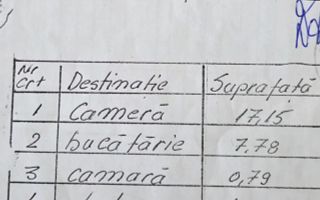 Nr crt Destinatie Suprafată
1 Cameră 17,15
2 bucătărie 7.78
3 camară 0,79